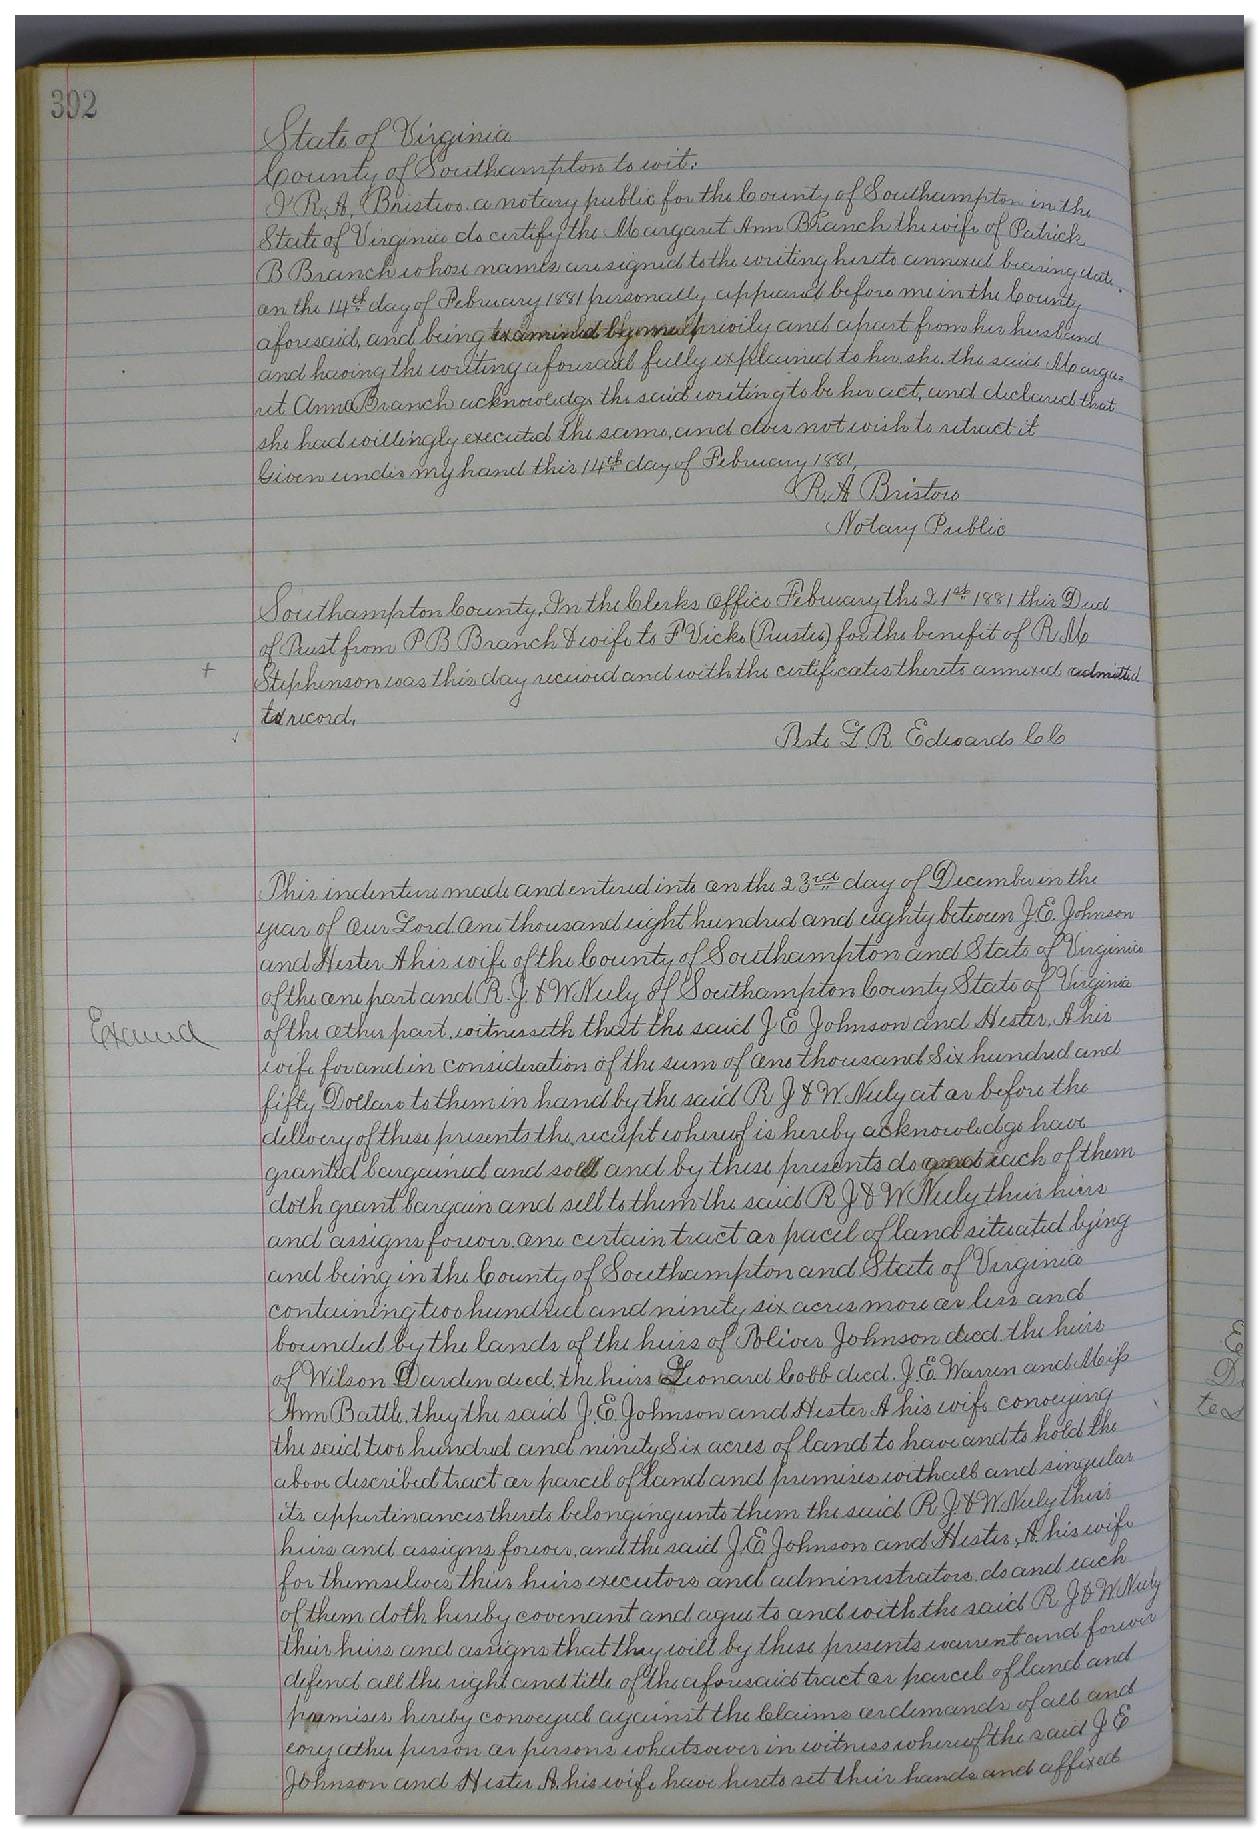 392
State of Virginia
County of Southampton to wit:
I R. A. Bristow a notary public for the County of Southampton in the
State of Virginia do certify the Margaret Ann Branch the wife of Patrick
B Branch whose names are signed to the writing hereto annexed bearing date
on the 14th day of February 1881 personally appeared before me in the County
aforesaid, and being examined by me privily and apart from her husband
and having the writing aforesaid fully explained to her she the said Marga=
ret Anna Branch acknowledge the said writing to be her act, and declared that
she had willingly executed the same, and does not wish to retract it
Given under my hand this 14th day of February 1881.
R. A Bristow
Notary Public
Southampton County, In the Clerks Office February the 21st 1881 this Deed
of Trust from P B Branch & wife to F Vicks (Trustee) for the benefit of R. M
+ Stephenson was this day received and with the certificates thereto annexed admitted
to record.
Teste L. R. Edwards CC
This indenture made and entered into on the 23rd day of December in the
year of our Lord one thousand eight hundred and eighty between J. E. Johnson
and Hester A his wife of the County of Southampton and State of Virginia
of the one part and R. J. & W. Neely of Southampton County State of Virginia
Examd
of the other part, witnesseth that the said J E Johnson and Hester, A his
wife for and in consideration of the sum of one thousand Six hundred and
fifty Dollars to them in hand by the said R J & W. Neely at or before the
delivery of these presents the receipt whereof is hereby acknowledge have
granted bargained and sold and by these presents do and each of them
doth grant bargain and sell to them the said R J & W Neely their heirs
and assigns forever one certain tract or pacel of land situated lying
and being in the County of Southampton and State of Virginia
containing two hundred and ninety six acres more or less and
bounded by the lands of the heirs of Johnson decd the heirs
of Wilson Darden decd, the heirs Leonard Cobb decd. J. E. Warren and Miss
Ann Battle, they the said J. E. Johnson and Hester A his wife conveying
the said two hundred and ninety Six acres of land to have and to hold the
above described tract or parcel of land and premises with all and singular
its appertinances thereto belonging unto them the said R J. & W. Neely their
heirs and assigns forever, and the said J. E Johnson and Hester, A. his wife
for themselves their heirs executors and administrators do and each
of them doth hereby covenant and agree to and with the said R J & W Neely
their heirs and assigns that they will by these presents warrent and forever
defend all the right and title of the aforesaid tract or parcel of land and
premises hereby conveyed against the Claims or demands of all and
evry other person or persons whatsoever in witness whereof the said J E
Johnson and Hester A. his wife have hereto set their hands and affixed